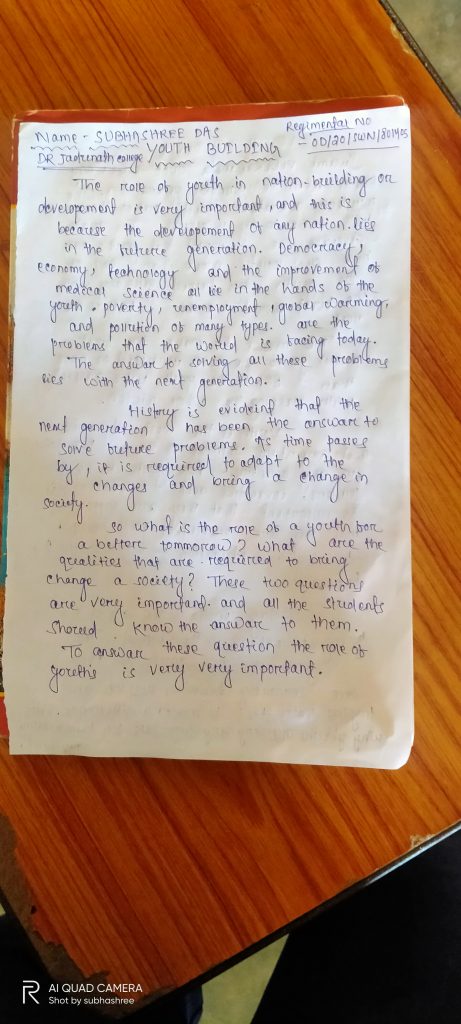 Name - SUBHASHREE DAS
Regimental No
- OD/20/SWN/801405
DR Jadunath college
YOUTH BUILDING
The role of youth in nation-building or
developement is very important, and this is
because the developement of any nation lies
in the future generation. Democracy,
economy, technology and the improvement of
medical science all lie in the hands of the
youth. poverty, unemployment, global warming,
and pollution of many types. are the
problems that the world is facing today.
The answar to solving all these problems
lies with the next generation.
History is evideint that the
next generation has been the answar to
solve future problems. As time passes
by, it is required to adapt to the
changes and bring a change in
society.
So what is the role of a youth for
a better tommorow? What are the
qualities that are required to bring
change a society? These two questions
are very important. and all the students
should know the answar to them.
To answar these question the role of
youths is very very important.
AI QUAD CAMERA
Shot by subhashree